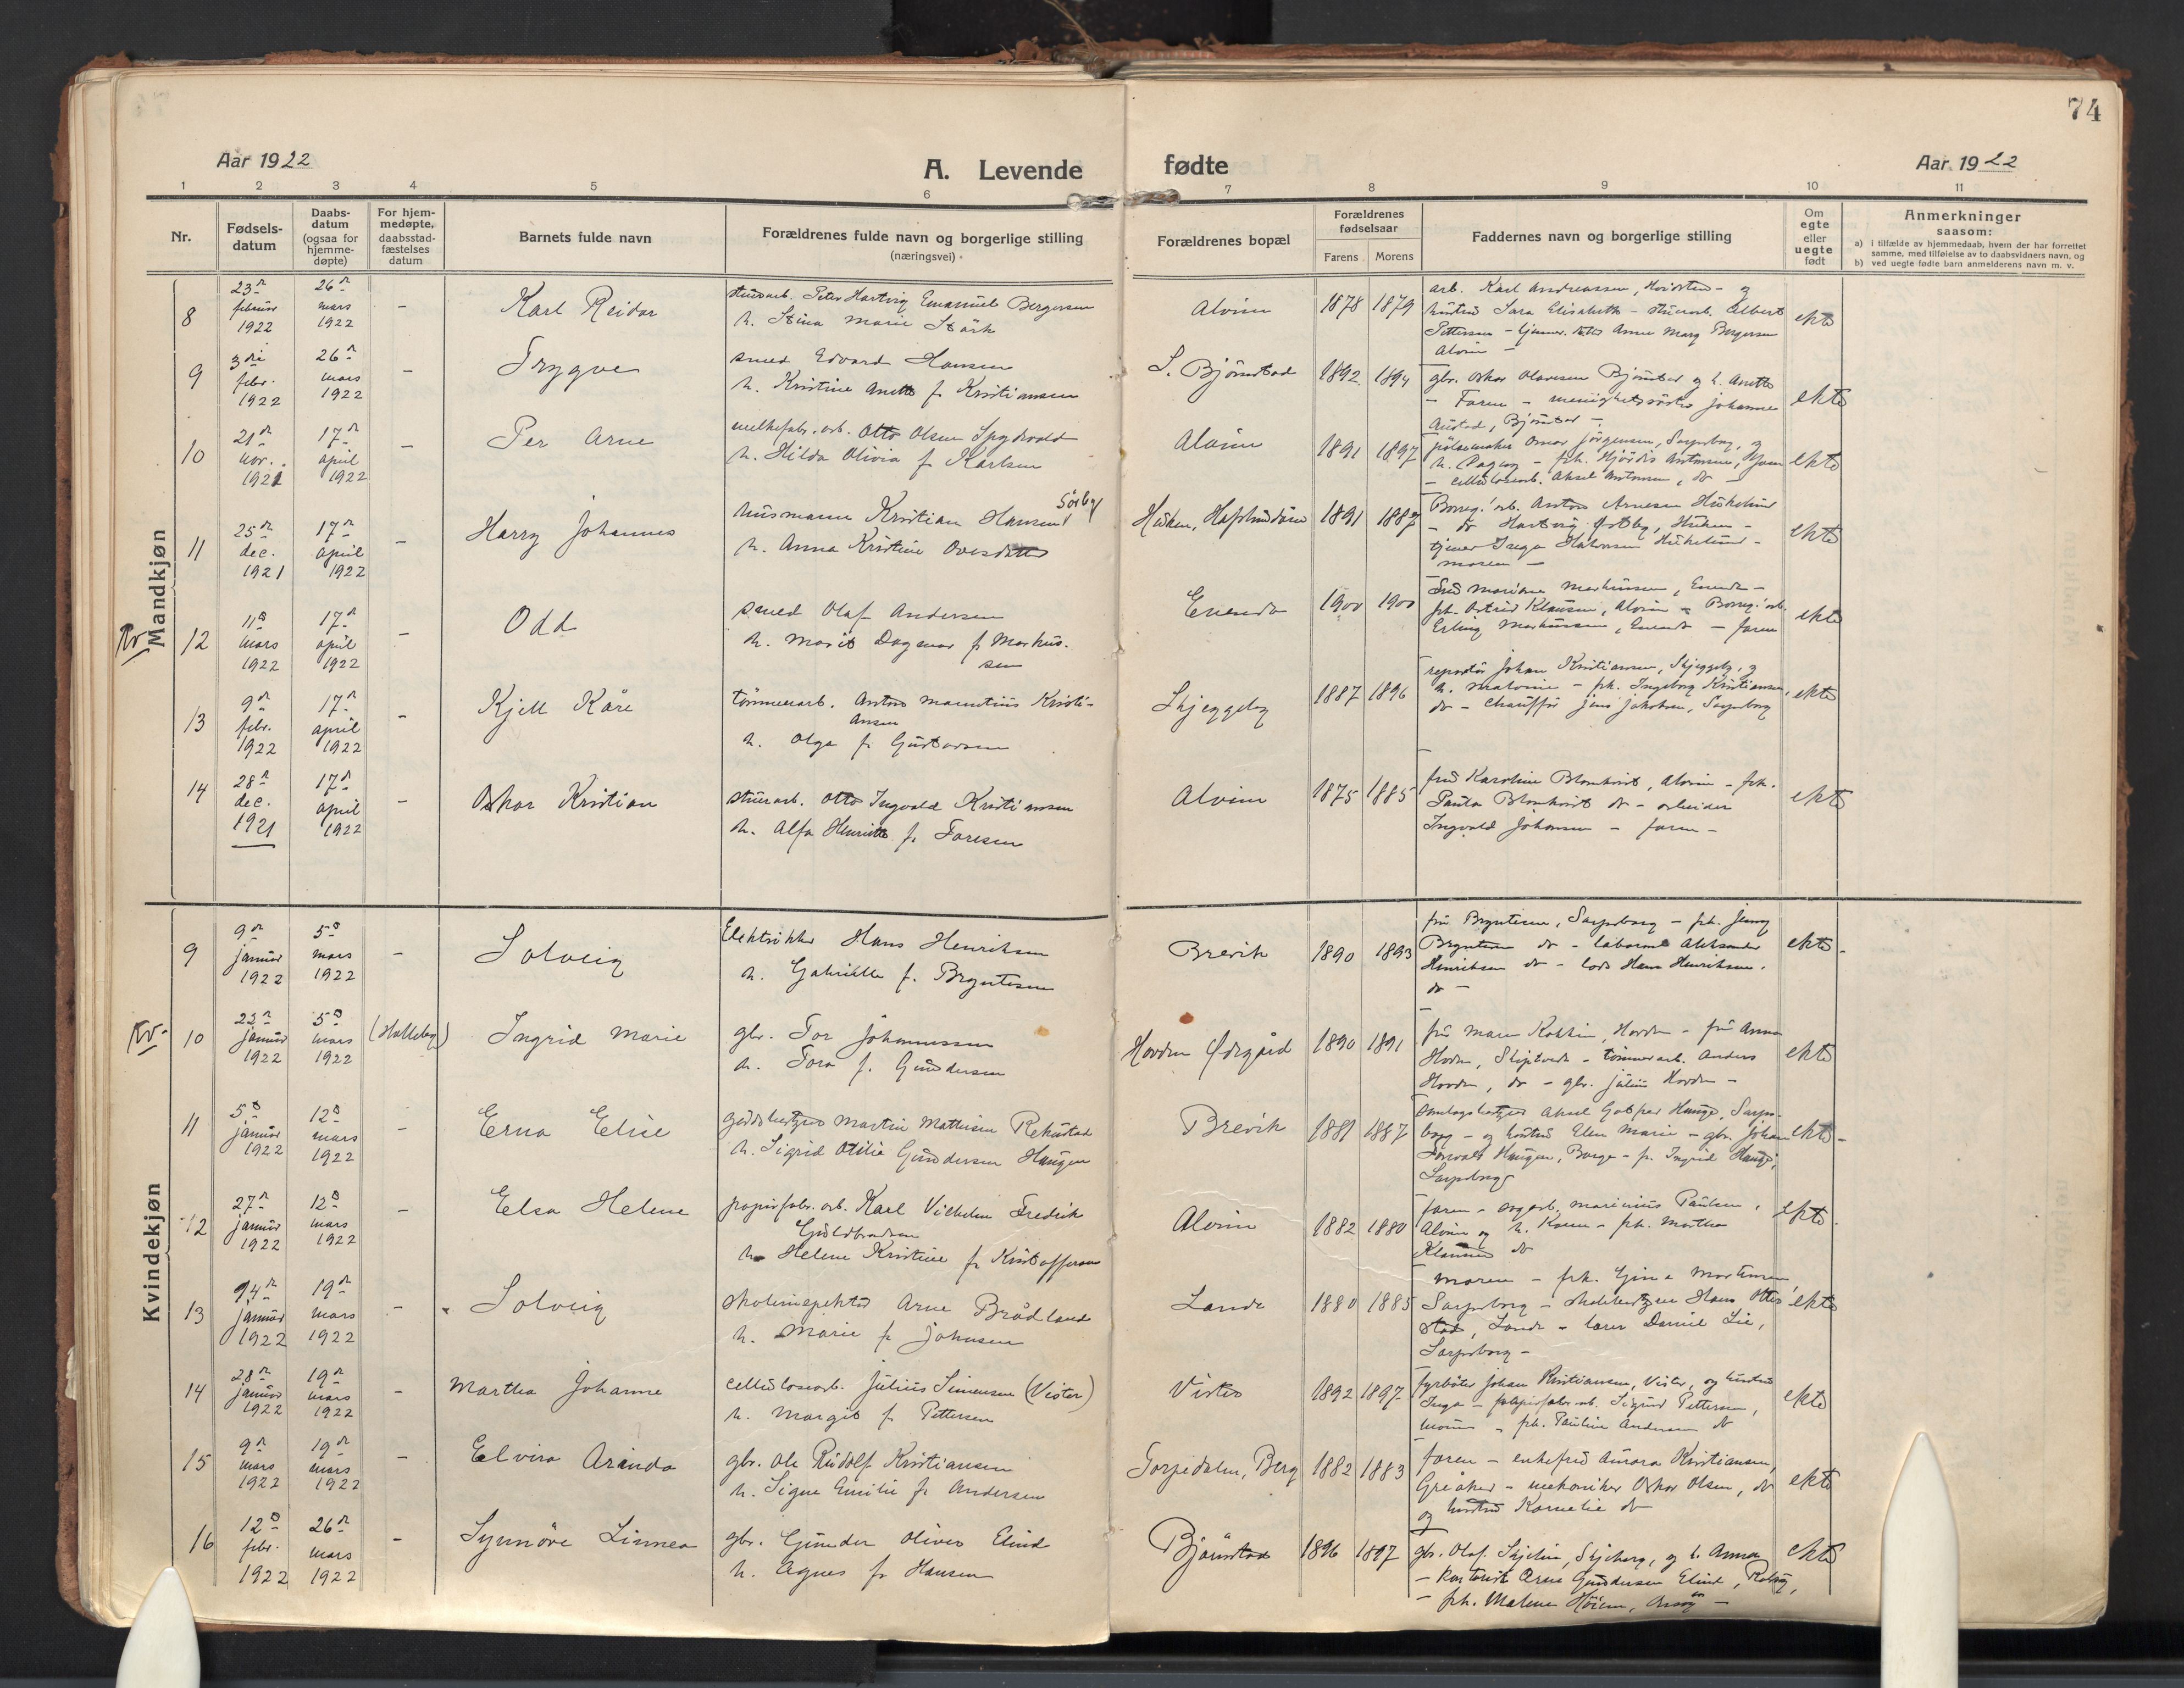 74
Aar 1922
A. Levende fødte
Aar 1922
1 2 3 4 5 6 7 8 9 10 11
Nr.
Fødsels-
datum
Daabs-
datum
(ogsaa for
hjemme-
døpte)
For hjem-
medøpte,
daabsstad-
fæstelses
datum
Barnets fulde navn
Forældrenes fulde navn og borgerlige stilling
(næringsvei)
Forældrenes bopæl
Forældrenes
fødselsaar
Farens Morens
Faddernes navn og borgerlige stilling
Om
egte
eller
uegte
født
Anmerkninger
saasom:
a) i tilfælde av hjemmedaab, hvem der har forrettet
samme, med tilføielse av to daabsvidners navn, og
b) ved uegte fødte barn anmelderens navn m. v.
Mandkjøn
8
23
februar
1922
26
mars
1922
–
Karl Reidar
Peter Hartvig Emanuel Bergersen
h. Stina Marie Stärk
Alvim
1878 1879
arb. Karl Andreassen, og
hustru Sara Elisabeth – Albert
Pettersen – Anna Marg Bergersen
Alvim –
ekte
9
3die
febr.
1922
26
mars
1922
–
Trygve
smed Edvard Hansen
h. Kristine Anette f. Kristiansen
S. Bjørnstad
1892 1894
gbr. Oskar Olavesen Bjørnstad og h. Anette
– Faren – menighetssøster Johanne
Austad, Bjørnstad –
ekte
10
21
nov.
1921
17
april
1922
–
Per Arne
Otto Olsen Spydevold
h. Hilda Olivia f. Karlsen
Alvim
1891 1897
pølsemaker Omar Jørgensen, Sarpsborg, og
h. Dagny – frk. Hjørdis Antonsen,
– cellulosearb. Aksel Antonsen, do –
ekte
11
25
dec.
1921
17
april
1922
–
Harry Johannes
husmann Kristian Hansen Sørby
h. Anna Kristine Ovesdatter
Hafslundsøen
1891 1887
Borreg. arb. Anton Arnesen
– do Hartvig Østby,
tjener Inga
moren –
ekte
Rv.
12
11
mars
1922
17
april
1922
–
Odd
smed Olaf Andersen
h. Marit Dagmar f. Markus-
sen
Enenda
1900 1900
Fru Mariane Markussen,
frk. Astrid Klausen, Alvim – Borreg. arb.
Erling Markussen, – faren
ekte
13
9
febr.
1922
17
april
1922
–
Kjell Kåre
tømmerarb. Anton Mauritius Kristi-
ansen
h. Olga f. Gustavsen
Skjeggeby
1887 1896
reparatør Johan Kristiansen, Skjeggeby, og
h. – frk. Ingeborg Kristiansen,
do – chauffør Jens Jakobsen, Sarpsborg
ekte
14
28
dec.
1921
17
april
1922
–
Oskar Kristian
Otto Ingvald Kristiansen
h. Alfa Henriette f. Toresen
Alvim
1875 1885
fru Karoline Blomkvist, Alvim – frk.
Paula Blomkvist do – arbeider
Ingvald Johansen – faren –
ekte
Kvindekjøn
9
9
januar
1922
5
mars
1922
–
Solveig
Elektriker Hans Henriksen
h. Gabrielle f. Bryntesen
Brevik
1890 1893
fru Bryntesen, Sarpsborg – frk. Jenny
Bryntesen do – Aleksander
Henriksen do – Hans Henriksen,
do –
ekte
Rv.
10
januar
1922
5
mars
1922
(Hafleby)
Ingrid Marie
gbr. Tor Johannessen
h. Tora f. Gundersen
Hovden Ødegård
1890 1891
fru Maren Hovden – fru Anna
Hovden, Skiptvedt – tømmerarb. Anders
Hovden, do – gbr. Julius Hovden –
ekte
11
5
januar
1922
12
mars
1922
–
Erna Elise
Martin Mathisen Rekustad
h. Sigrid Otilie Gundersen Haugen
Brevik
1881 1887
Aksel Haugen, Sarps-
borg – og hustru Elen Marie – gbr. Johan
Haugen, Borge – fr. Ingrid
Sarpsborg
ekte –
12
27
januar
1922
12
mars
1922
–
Elsa Helene
papirfabr. arb. Karl Vilhelm Fredrik
Guldbrandsen
h. Helene Kristine f. Kristoffersen
Alvim
1882 1880
faren – Marinius Paulsen,
Alvim og h. Karen – frk. Martha
Klausen do
ekte
13
14
januar
1922
19
mars
1922
–
Solveig
skoleinspektør Arne Brådland
h. Marie f. Johnsen
Lande
1880 1885
Moren – frk. Gina Mortensen,
Sarpsborg – skolebestyrer Hans Otter-
stad, Lande – lærer Daniel Lie,
Sarpsborg –
ekte
14
28
januar
1922
19
mars
1922
–
Martha Johanne
cellulosearb. Julius Simensen (Vister)
h. Margit f. Pettersen
Vister
1892 1897
fyrbøter Johan Kristiansen, Vister, og hustru
Inga – papirfabr. arb. Sigurd Pettersen,
– frk. Pauline Andersen do
ekte
15
9
mars
1922
19
mars
1922
–
Elvira Arinda
gbr. Ole Rudolf Kristiansen
h. Signe Emilie f. Andersen
Torpedalen, Berg
1882 1883
faren – enkefru Aurora Kristiansen,
Greåker – mekaniker Oskar Olsen, do
og hustru Kornelie do
ekte
16
12
febr.
1922
26
mars
1922
–
Synnøve Linnea
gbr. Gunder Oliver Elind
h. Agnes f. Hansen
Bjørnstad
1896 1897
gbr. Olaf Skjelin, Skjeberg, og h. Anna
– kontorist Arne Gundersen Elind, Rolvsøy,
– frk. Malene –
ekte